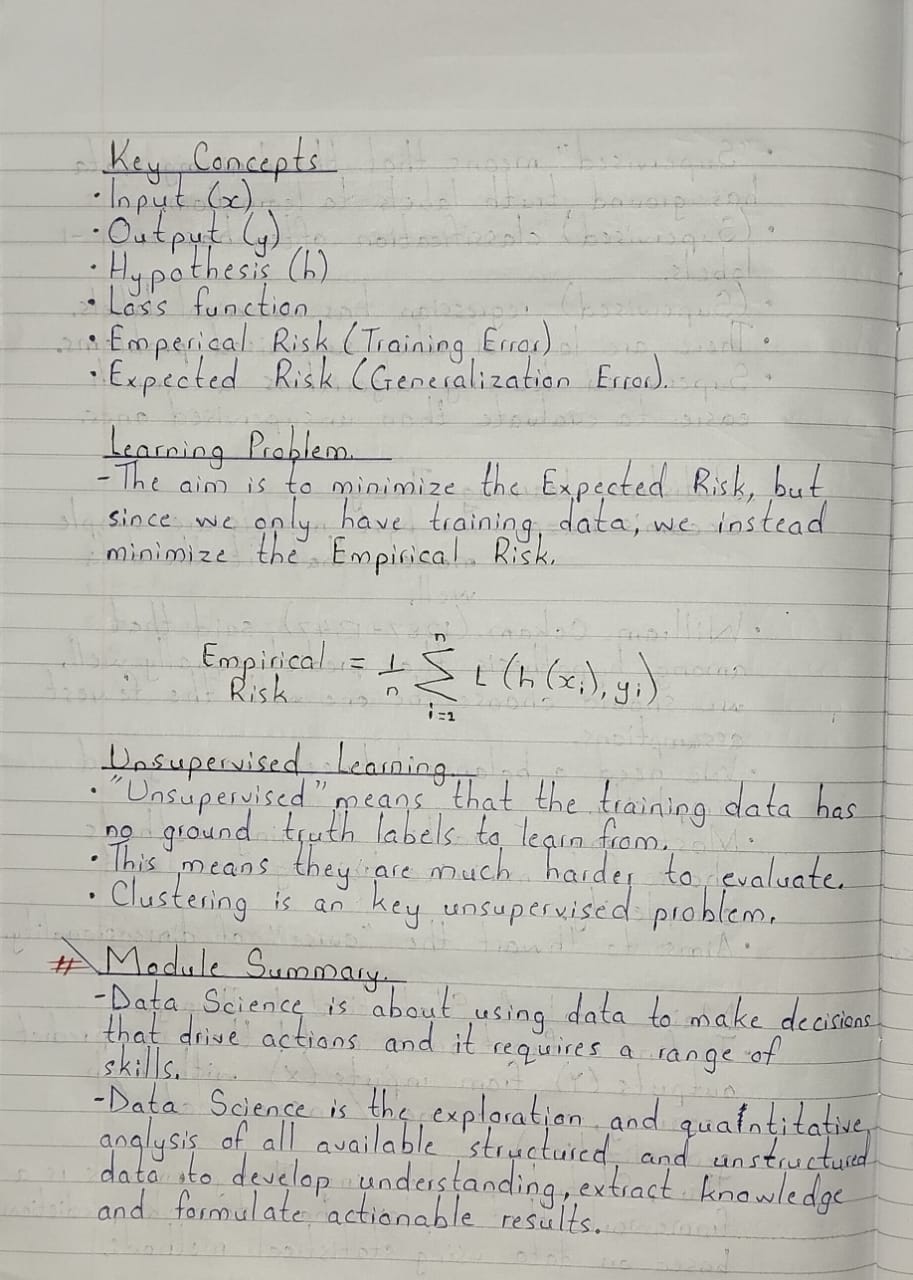 Key Concepts
• Input (x)
• Output (y)
• Hypothesis (h)
• Loss function
• Emperical Risk (Training Error)
• Expected Risk (Generalization Error).
Learning Problem.
- The aim is to minimize the Expected Risk, but
since we only have training data, we instead
minimize the Empirical Risk.
Empirical Risk = 1/n n∑i=1 L (h(xi), yi)
Unsupervised Learning
• "Unsupervised" means that the training data has
no ground truth labels to learn from.
• This means they are much harder to evaluate.
• Clustering is an key unsupervised problem.
# Module Summary.
- Data Science is about using data to make decisions
that drive actions and it requires a range of
skills.
- Data Science is the exploration and quaintitative
analysis of all available structured and unstructured
data to develop understanding, extract knowledge
and formulate actionable results.